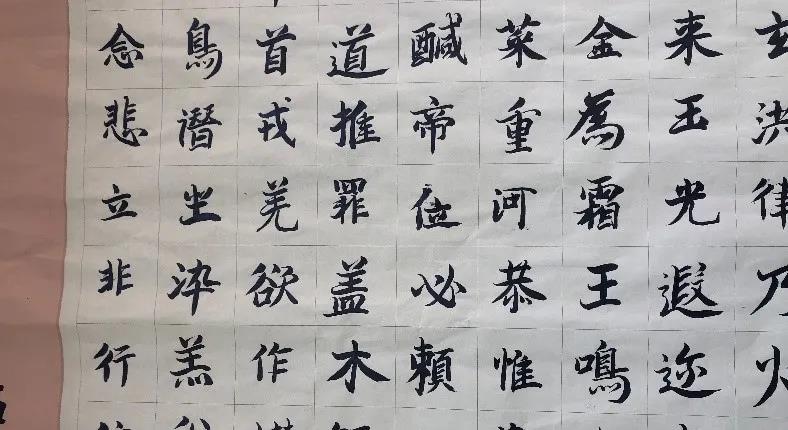 玄洪律乃火
来玉光遐迩
金為霜王鳴
菜重河恭惟
醎帝位必賴
道推罪盖木
首戎羌欲作
鳥潛坐染羔
念悲立非行